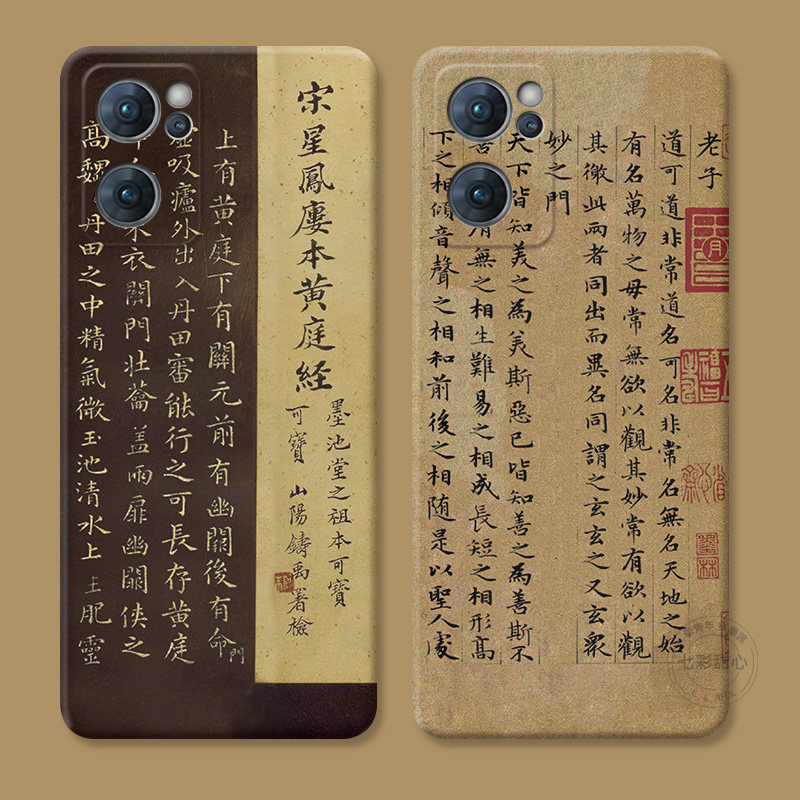 宋星鳳廔本黃庭経
墨池堂之祖本可寶
可寶 山陽鑄禹署檢
上有黃庭下有關元前有幽闕後有命門
吸廬外出入丹田審能行之可長存黃庭
衣關門壯籥蓋兩扉幽闕俠之
高巍丹田之中精氣微玉池清水上生肥靈
老子
道可道非常道名可名非常名無名天地之始
有名萬物之母常無欲以觀其妙常有欲以觀
其徼此兩者同出而異名同謂之玄玄之又玄眾
妙之門
天下皆知美之為美斯惡已皆知善之為善斯不
善無之相生難易之相成長短之相形高
下之相傾音聲之相和前後之相隨是以聖人處
七彩甜心